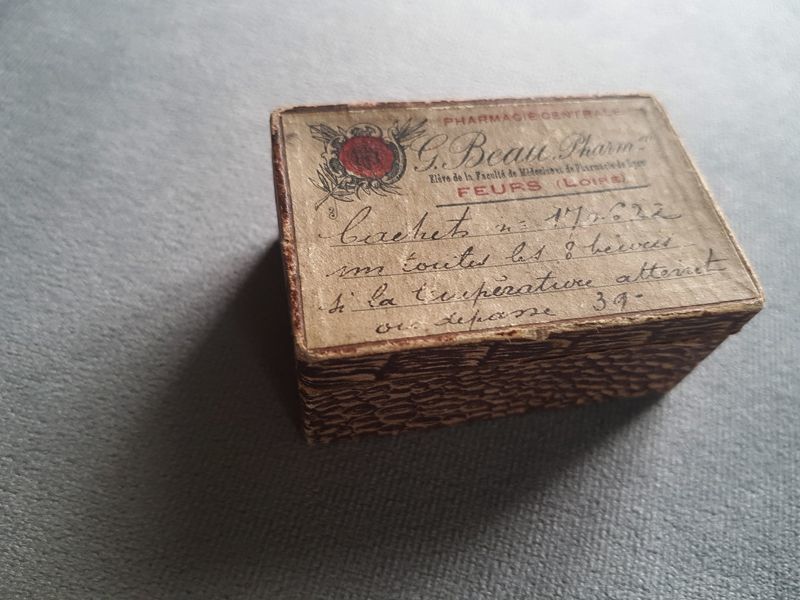 PHARMACIE CENTRALE
G. Beau Pharm.
Elève de la Faculté de Médecine et de Pharmacie de Lyon
FEURS (LOIRE)
Cachets n° 170622
un toutes les 8 heures
si la température atteint
ou dépasse 39°